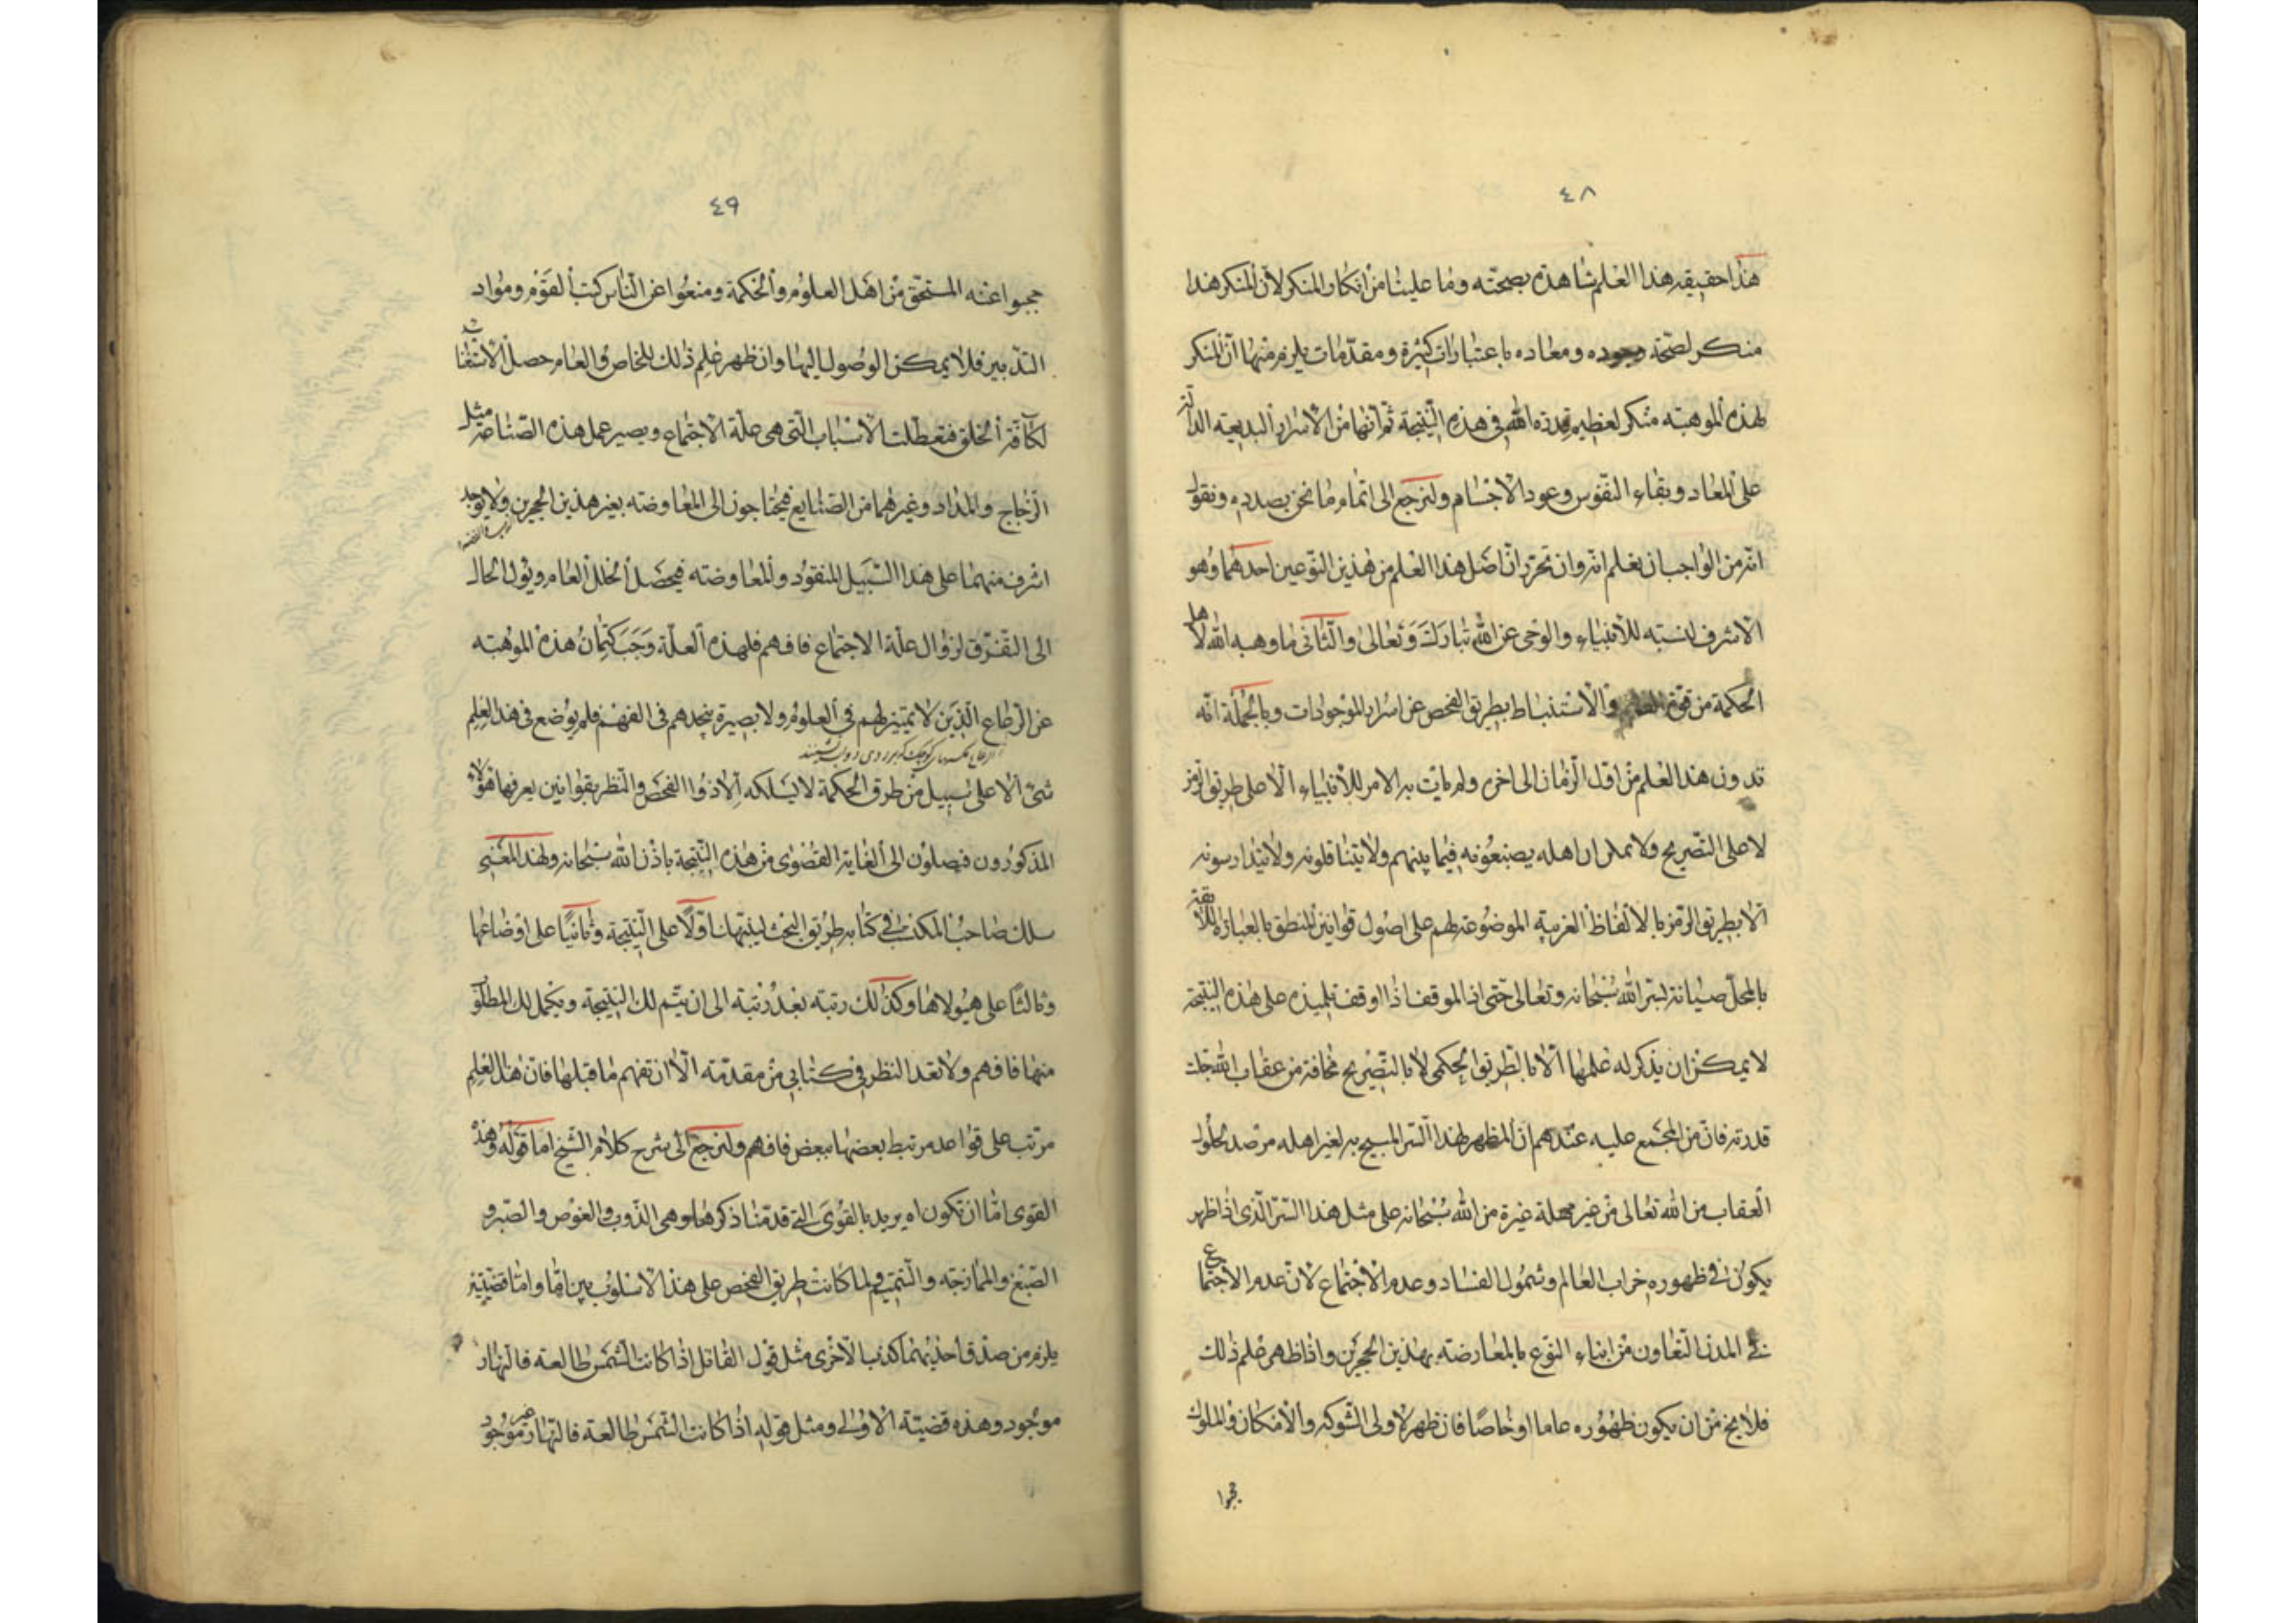 ٤٨
هذا حقيقة هذا العلم شاهدة بصحته وما علينا من انكار المنكر لأن المنكر هذا
منكر لصحة وجوده ومعاده باعتبارات كثيرة ومقدّمات يلزم منها انّ المنكر
لهذه الموهبة منكر لعظيم قدرة الله فى هذه النّتيجة ثمّ انّها من الأسرار البديعة الدالّة
على المعاد وبقاء النفوس وعود الأجسام ولنرجع الى اتمام ما نحن بصدده ونقول
انّه من الواجب ان نعلم انّه وان تحرّر انّ اصل هذا العلم من هذين النّوعين احدهما وهو
الاشرف لنسبته للأنبياء والوحى عن الله تبارك وتعالى والثّانى ما وهبه الله لأهل
الحكمة من قوّة والاستنباط بطريق الفحص عن اسرار الموجودات وبالجملة انّه
تدون هذا العلم من اوّل الزّمان الى آخره ولم يأت به الامر للأنبياء الّا على طريق الرمز
لا على التّصريح ولا يمكن ان اهله يصنعونه فيما بينهم ولا يتناقلونه ولا يتدارسونه
الّا بطريق الرّمز بالألفاظ الغريبة الموضوعة لهم على اصول قوانين المنطق بالعبارة اللائقة
بالمحلّ صيانة لسرّ الله سبحانه وتعالى حتى انّ الموقف اذا اوقف تلميذه على هذه النّتيجة
لا يمكن ان يذكر له علمها الّا بالطّريق الحكمى لا بالتّصريح مخافة من عقاب الله جلّت
قدرته فانّ من المجتمع عليه عندهم ان المظهر لهذا السّرّ المبيح به لغير اهله مرصد لحلول
العقاب من الله تعالى من غير مهلة غيرة من الله سبحانه على مثل هذا السّرّ الّذى اذا ظهر
يكون فى ظهوره خراب العالم وشمول الفساد وعدم الاجتماع لانّ عدم الاجتماع
فى المدن التّعاون من ابناء النّوع بالمعارضة بهذين الحجرين واذا ظهر علم ذلك
فلا يخ من ان يكون ظهوره عاما او خاصّا فان ظهر لأولى الشّوكة والأمكان والملوك
حجبوا
٤٩
حجبوا عنه المستحق من اهل العلوم والحكمة ومنعوا عن النّاس كتب القوم ومواد
التدبير فلا يمكن الوصول اليها وان ظهر علم ذلك للخاص والعام حصل الاستغناء
لكافّة الخلق فتعطّلت الاسباب الّتى هى علّة الاجتماع ويصير عمل هذه الصّناعة مثل
الزّجاج والمداد وغيرهما من الصّنايع فيحتاجون الى المعاوضة بغير هذين الحجرين ولا يوجد
اشرف منهما على هذا السّبيل للنقود والمعاوضة فيحصل الخلل العام ويؤل الحال
الى التّفرّق لزوال علّة الاجتماع فافهم فلهذه العلّة وجب كتمان هذه الموهبة
عن الرعاع الّذين لا تمييز لهم فى العلوم ولا بصيرة ينجدهم فى الفهم فلم يوضع فى هذا العلم
شئ الّا على سبيل من طرق الحكمة لا يسلكه الّا ذوا الفحص والنّظر بقوانين يعرفها هؤلاء
المذكورون فيصلون الى الغاية القصوى من هذه النّتيجة باذن الله سبحانه ولهذا المعنى
سلك صاحب المكتسب فى كتابه طريق البحث لينبّهك اوّلًا على النّتيجة وثانيًا على اوضاعها
وثالثًا على هيولاها وكذلك رتبة بعد رتبة الى ان يتّم لك النّتيجة ويكمل لك المطلوب
منها فافهم ولا تعد النظر فى كتابى من مقدّمة الّا ان تفهم ما قبلها فانّ هذا العلم
مرتب على قواعد مرتبط بعضها ببعض فافهم ولنرجع الى شرح كلام الشّيخ اما قوله وهذه
القوى امّا ان تكون اه يريد بالقوى الّتى قدمنا ذكرها وهى الذّوب والغوص والصّبر و
الصّبغ والممازجة والتّتميم ولما كانت طريق الفحص على هذا الاسلوب بين امّا واما قضيّتين
يلزم من صدق احديهما كذب الأخرى مثل قول القائل اذا كانت الشّمس طالعة فالنّهار
موجود وهذه قضيّة الاولى ومثل قوله اذا كانت الشّمس طالعة فالنّهار غير موجود